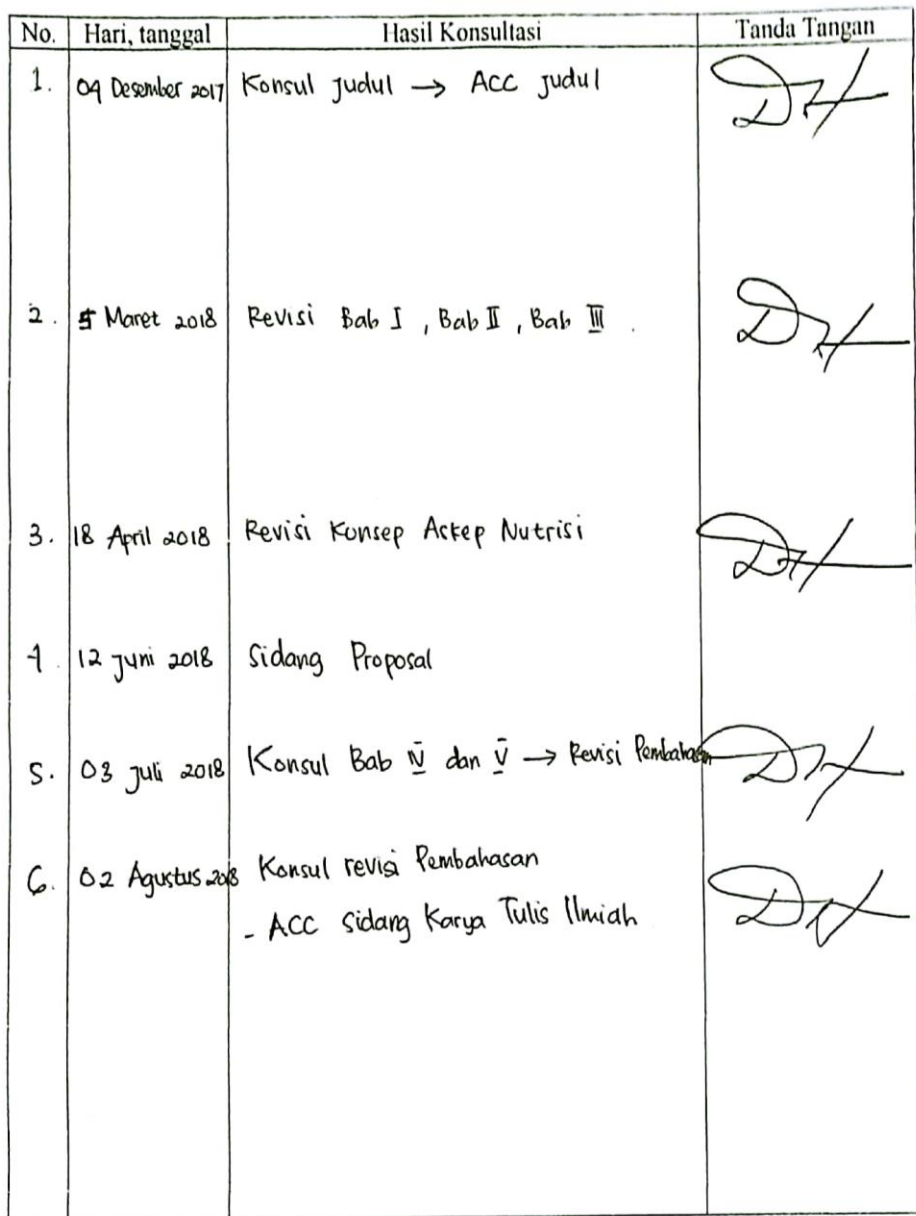 No. Hari, tanggal Hasil Konsultasi Tanda Tangan
1. 04 Desember 2017 Konsul Judul → ACC Judul
2. 5 Maret 2018 Revisi Bab I, Bab II, Bab III.
3. 18 April 2018 Revisi Konsep Askep Nutrisi
4. 12 Juni 2018 Sidang Proposal
5. 03 Juli 2018 Konsul Bab IV dan V → Revisi Pembahasan
6. 02 Agustus 2018 Konsul revisi Pembahasan
- ACC Sidang Karya Tulis Ilmiah